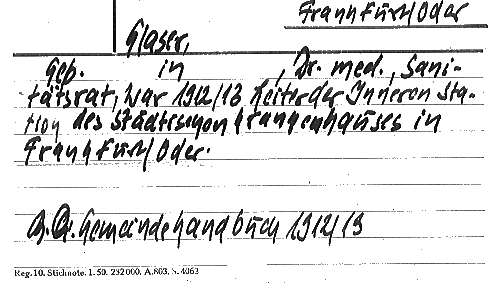 Frankfurt/Oder
Glaser,
Geb. in , Dr. med., Sani-
tätsrat, war 1912/13 Leiter der Inneren Sta-
tion des städtischen Krankenhauses in
Frankfurt/Oder.
Gemeindehandbuch 1912/13
Reg. 10. Stichnote. 1. 50. 232000. A. 803. S. 4063